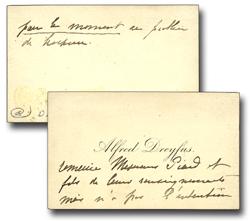 pour le moment
de
Alfred Dreyfus.
remercie Messieurs et
fils de leurs renseignements
mais n'a pas l'intention